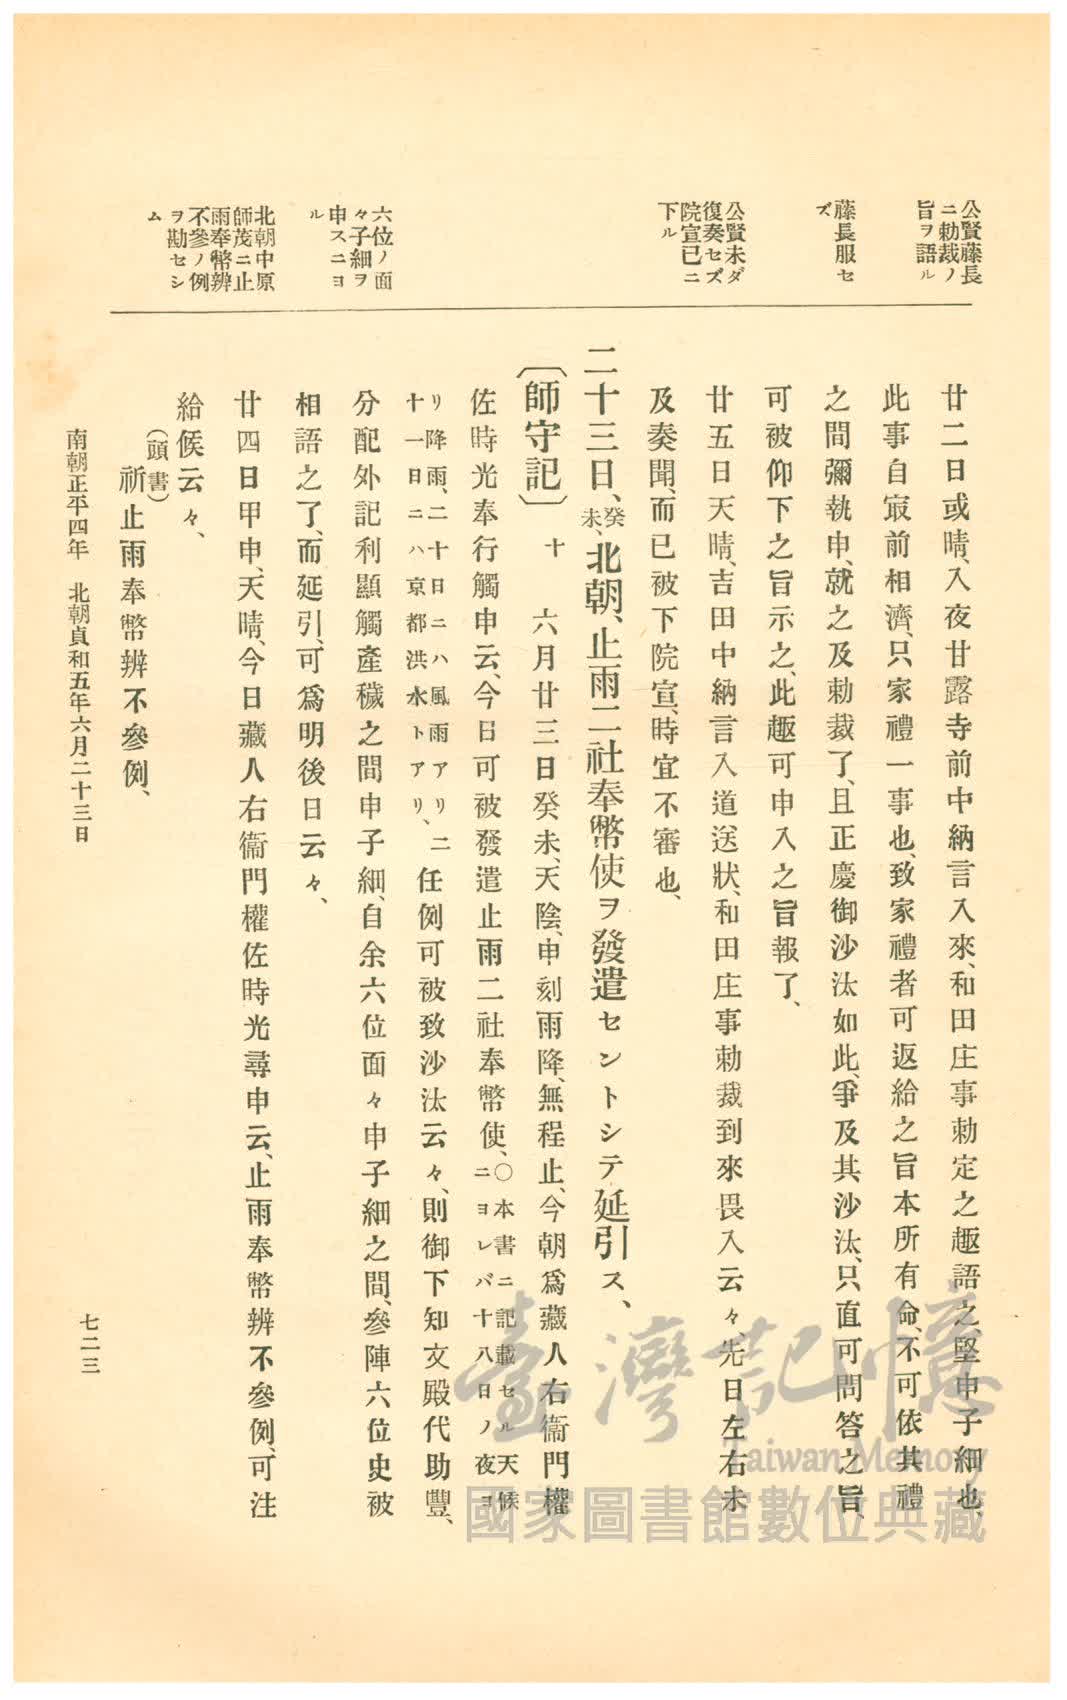 公賢藤長
ニ勅裁ノ
旨ヲ語ル
藤長服セ
ズ
公賢未ダ
復奏セズ
院宣已ニ
下ル
六位ノ面
々子細ヲ
申スニヨ
ル
北朝中原
師茂ニ止
雨奉幣辨
不參ノ例
ヲ勘セシ
ム
廿二日或晴、入夜甘露寺前中納言入來、和田庄事勅定之趣語之、堅申子細也、
此事自㝡前相濟、只家禮一事也、致家禮者可返給之旨本所有命、不可依其禮
之間彌執申、就之及勅裁了、且正慶御沙汰如此、爭及其沙汰、只直可問答之旨、
可被仰下之旨示之、此趣可申入之旨報了、
廿五日天晴、吉田中納言入道送狀、和田庄事勅裁到來畏入云々、先日左右未
及奏聞、而已被下院宣、時宜不審也、
二十三日、癸未、北朝、止雨二社奉幣使ヲ發遣セントシテ延引ス、
〔師守記〕十 六月廿三日癸未、天陰、申刻雨降、無程止、今朝爲藏人右衞門權
佐時光奉行觸申云、今日可被發遣止雨二社奉幣使、○本書ニ記載セル天候ニヨレバ十八日ノ夜ヨ
リ降雨、二十日ニハ風雨アリ二十一日ニハ京都洪水トアリ、任例可被致沙汰云々、則御下知文殿代助豐、
分配外記利顯觸產穢之間申子細、自余六位面々申子細之間、參陣六位史被
相語之了、而延引、可爲明後日云々、
廿四日甲申、天晴、今日藏人右衞門權佐時光尋申云、止雨奉幣辨不參例、可注
給候云々、
（頭書）
祈止雨奉幣辨不參例、
南朝正平四年 北朝貞和五年六月二十三日
七二三
臺灣記憶
Taiwan Memory
國家圖書館數位典藏